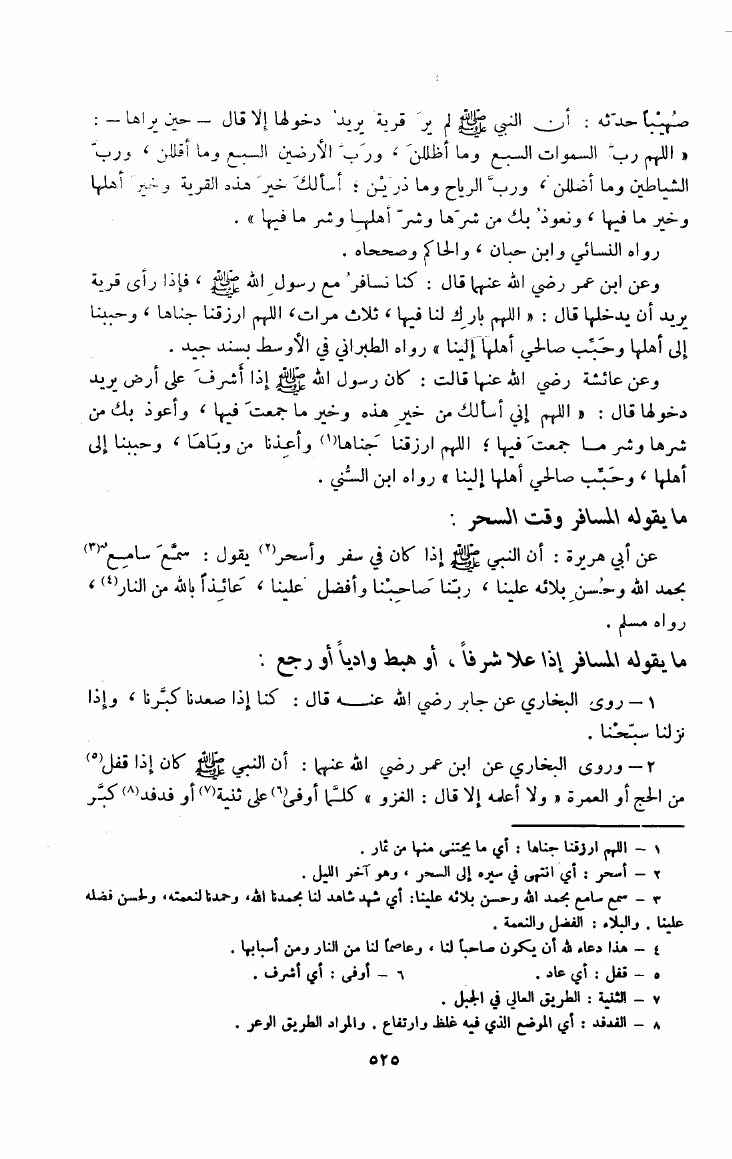 صُهَيْباً حدثه : أن النبي ﷺ لم يرَ قرية يريدُ دخولها إلا قال – حين يراها – :
« اللهم ربَّ السموات السبع وما أظللن ، وربَّ الأرضين السبع وما أقللن ، وربَّ
الشياطين وما أضللن ، وربَّ الرياح وما ذرَيْن ؛ أسألكَ خيرَ هذه القرية وخيرَ أهلها
وخير ما فيها ، ونعوذُ بك من شرِّها وشرّ أهلها وشر ما فيها » .
رواه النسائي وابن حبان ، والحاكم وصححاه .
وعن ابن عمر رضي الله عنهما قال : كنا نسافرُ مع رسول الله ﷺ ، فإذا رأى قرية
يريد أن يدخلها قال : « اللهم بارك لنا فيها ، ثلاث مرات، اللهم ارزقنا جناها ، وحببنا
إلى أهلها وحَبِّب صالحي أهلها إلينا » رواه الطبراني في الأوسط بسند جيد .
وعن عائشة رضي الله عنها قالت : كان رسول الله ﷺ إذا أشرفَ على أرض يريد
دخولها قال : « اللهم إني أسألك من خيرِ هذه وخير ما جمعتَ فيها ، وأعوذ بك من
شرها وشر مـا جمعتَ فيها ؛ اللهم ارزقنا جَناها(١) وأعِذنا من وبَاهَا ، وحببنا إلى
أهلها ، وحَبِّب صالحي أهلها إلينا » رواه ابن السُّني .
ما يقوله المسافر وقت السحر :
عن أبي هريرة : أن النبي ﷺ إذا كان في سفر وأسحر(٢) يقول : سمَّعَ سامِعٌ(٣)
بحمد الله وحُسن بلائه علينا ، ربّنا صَاحِبْنا وأفضل علينا ، عَائِذاً بالله من النار(٤) ،
رواه مسلم .
ما يقوله المسافر إذا علا شرفاً ، أو هبط وادياً أو رجع :
١ – روى البخاري عن جابر رضي الله عنـــه قال : كنا إذا صعدنا كبَّرنا ، وإذا
نزلنا سبّحْنا .
٢ – وروى البخاري عن ابن عمر رضي الله عنهما : أن النبي ﷺ كان إذا قفل(٥)
من الحج أو العمرة « ولا أعلمه إلا قال : الغزو » كلمَّا أوفى(٦) على ثنية(٧) أو فدفد(٨) كبَّر
١ – اللهم ارزقنا جناها : أي ما يجتنى منها من ثمار .
٢ – أسحر : أي انتهى في سيره إلى السحر ، وهو آخر الليل .
٣ – سمع سامع بحمد الله وحسن بلائه علينا: أي شهد شاهد لنا بحمدنا الله، وحمدنا لنعمته، ولحسن فضله
علينا . والبلاء : الفضل والنعمة .
٤ – هذا دعاء لله أن يكون صاحباً لنا ، وعاصماً لنا من النار ومن أسبابها .
٥ – قفل : أي عاد . ٦ – أوفى : أي أشرف .
٧ – الثنية : الطريق العالي في الجبل .
٨ – الفدفد : أي الموضع الذي فيه غلظ وارتفاع . والمراد الطريق الوعر .
٥٢٥